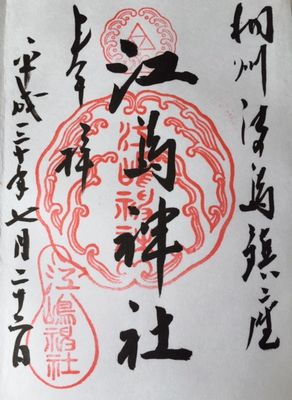 相州江島鎮座
江島神社
奉拝
平成三十年七月二十二日
江嶋神社